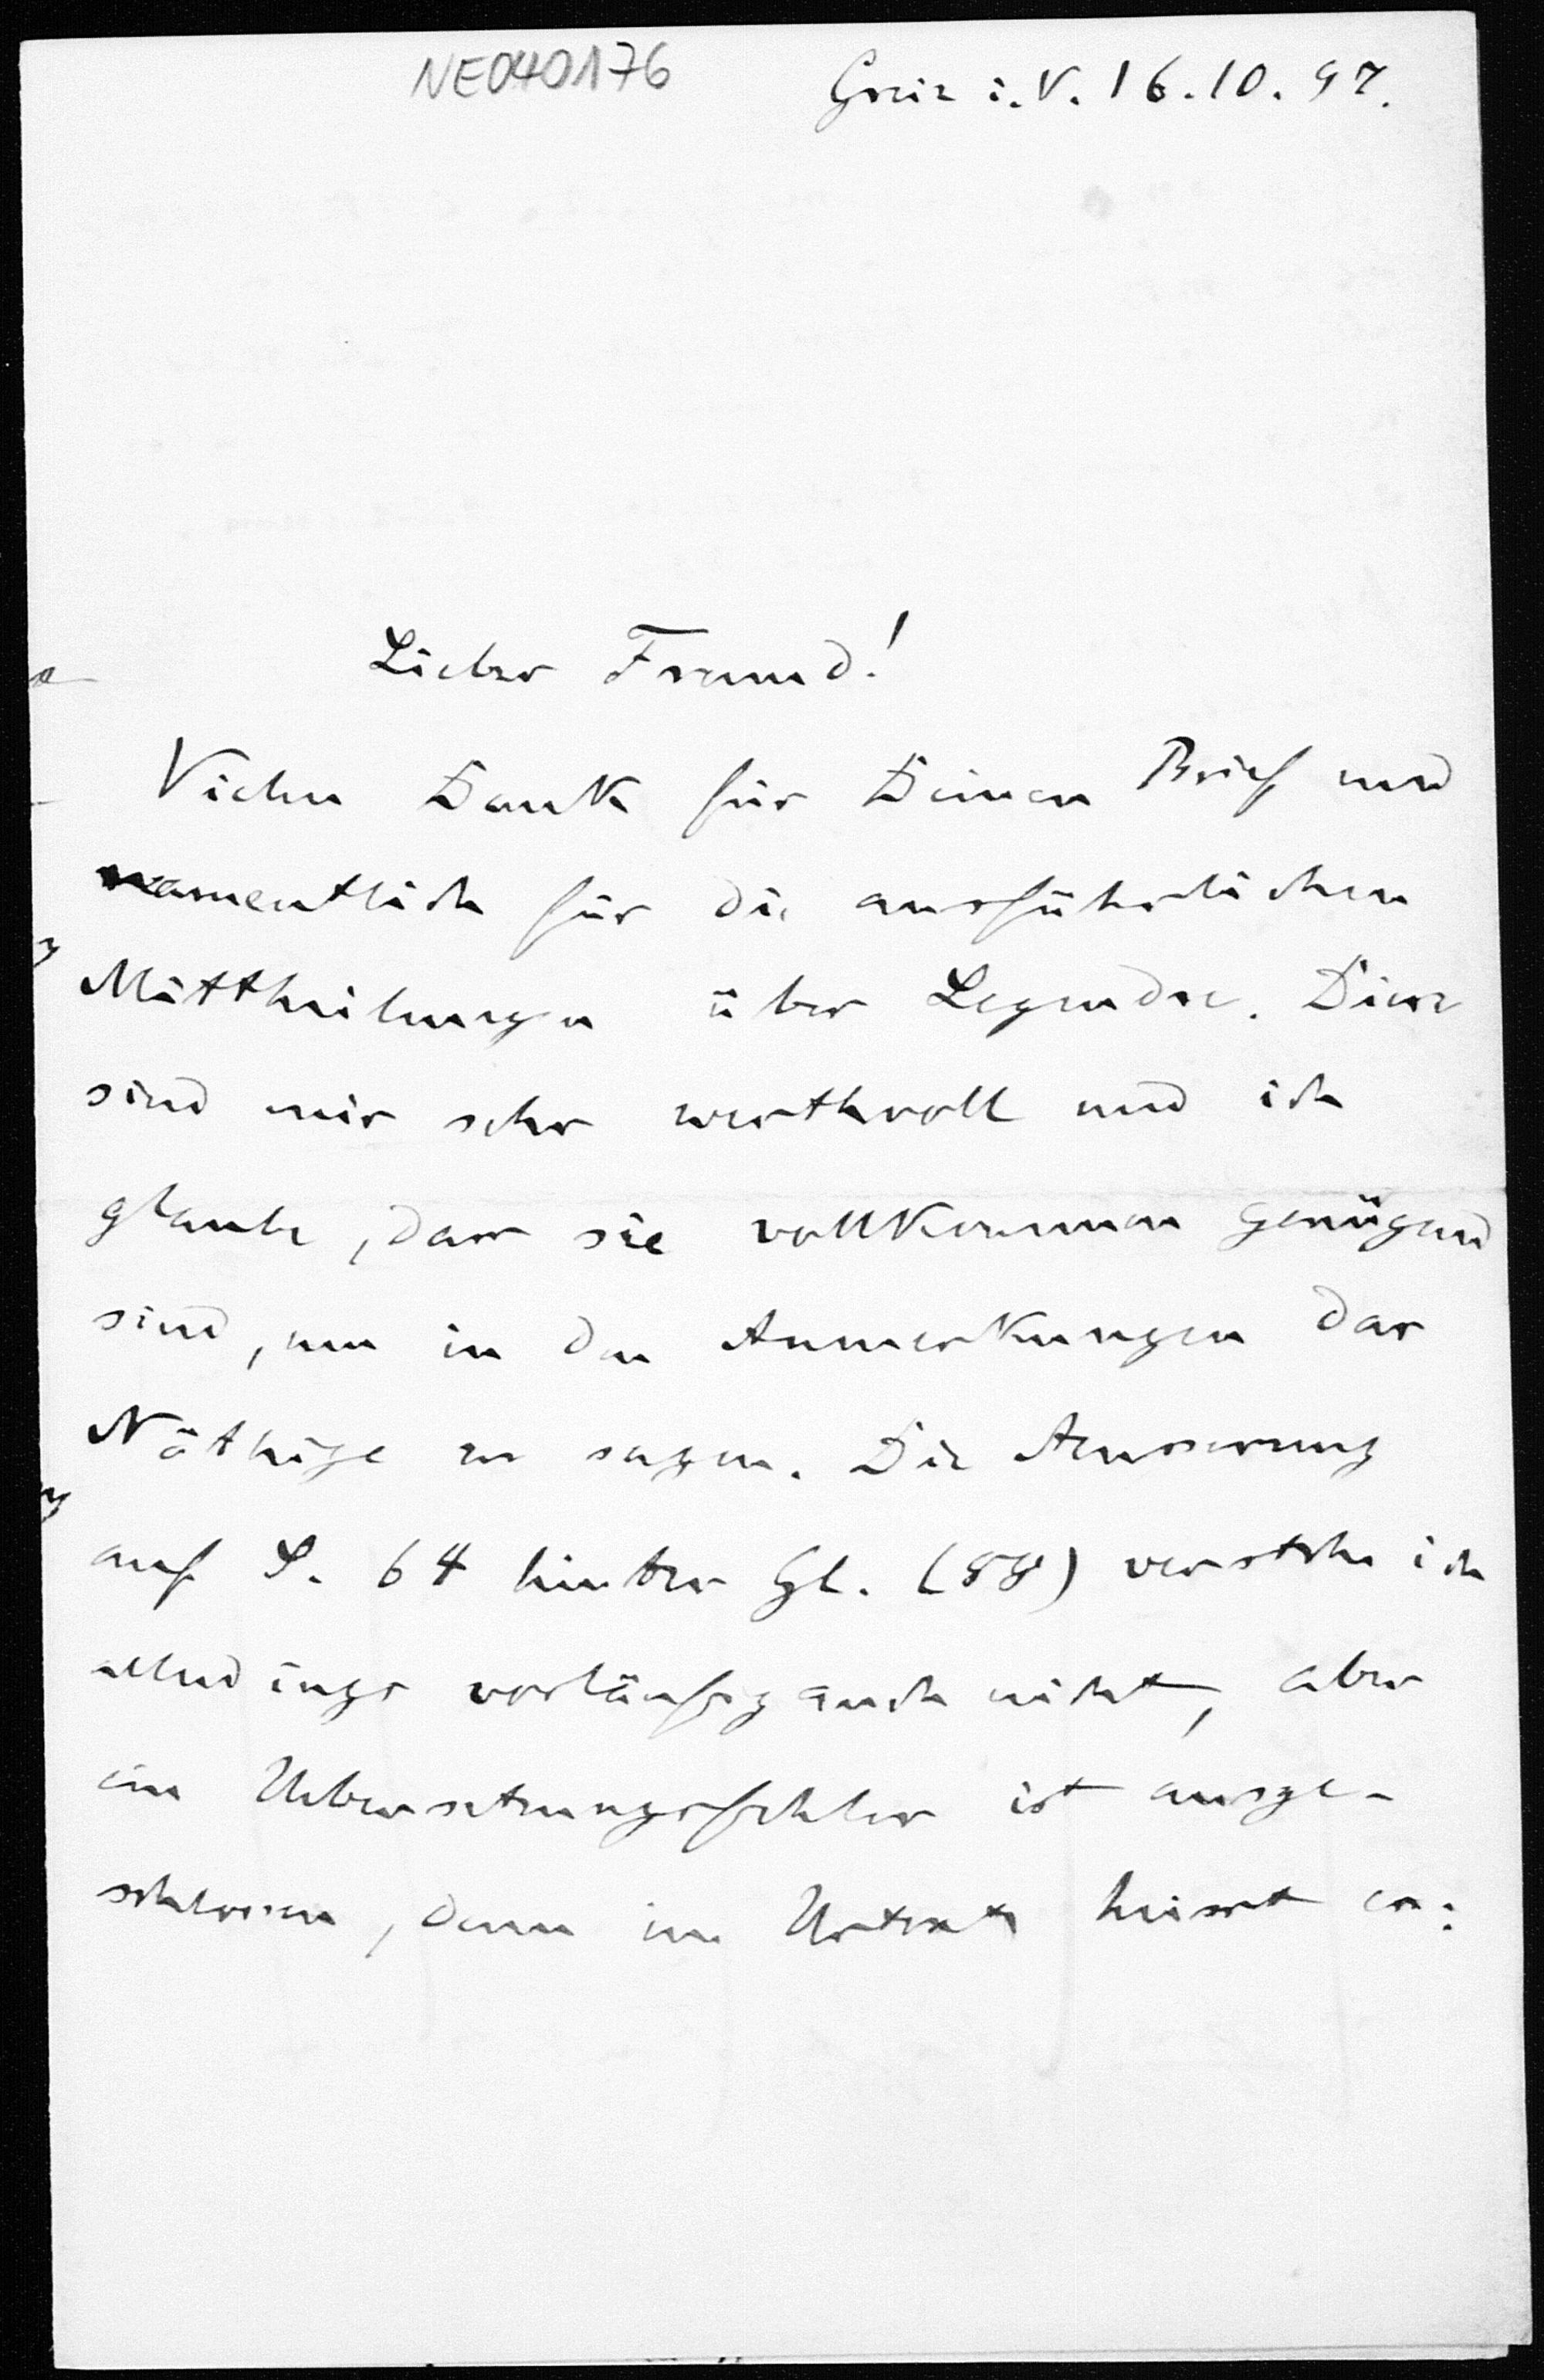 NE040176
Greiz i. V. 16.10.97.
Lieber Freund!
Vielen Dank für Deinen Brief und
namentlich für die ausführlichen
Mittheilungen über Legendre. Diese
sind mir sehr werthvoll und ich
glaube, dass sie vollkommen genügend
sind, um in den Anmerkungen das
Nöthige zu sagen. Die Aeusserung
auf S. 64 hinter Gl. (88) verstehe ich
allerdings vorläufig auch nicht, aber
ein Uebersetzungsfehler ist ausge-
schlossen, denn im Urtext heisst es: